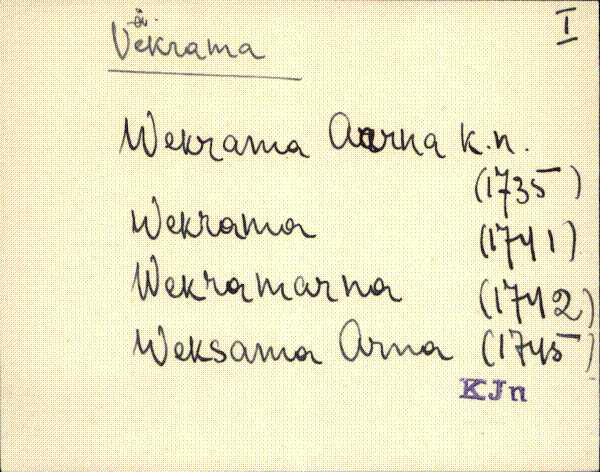 I
ä
Vekrama
Wekrama Aarna k.n.
(1735)
Wekrama (1741)
Wekramarna (1742)
Weksama Arna (1745)
KJn